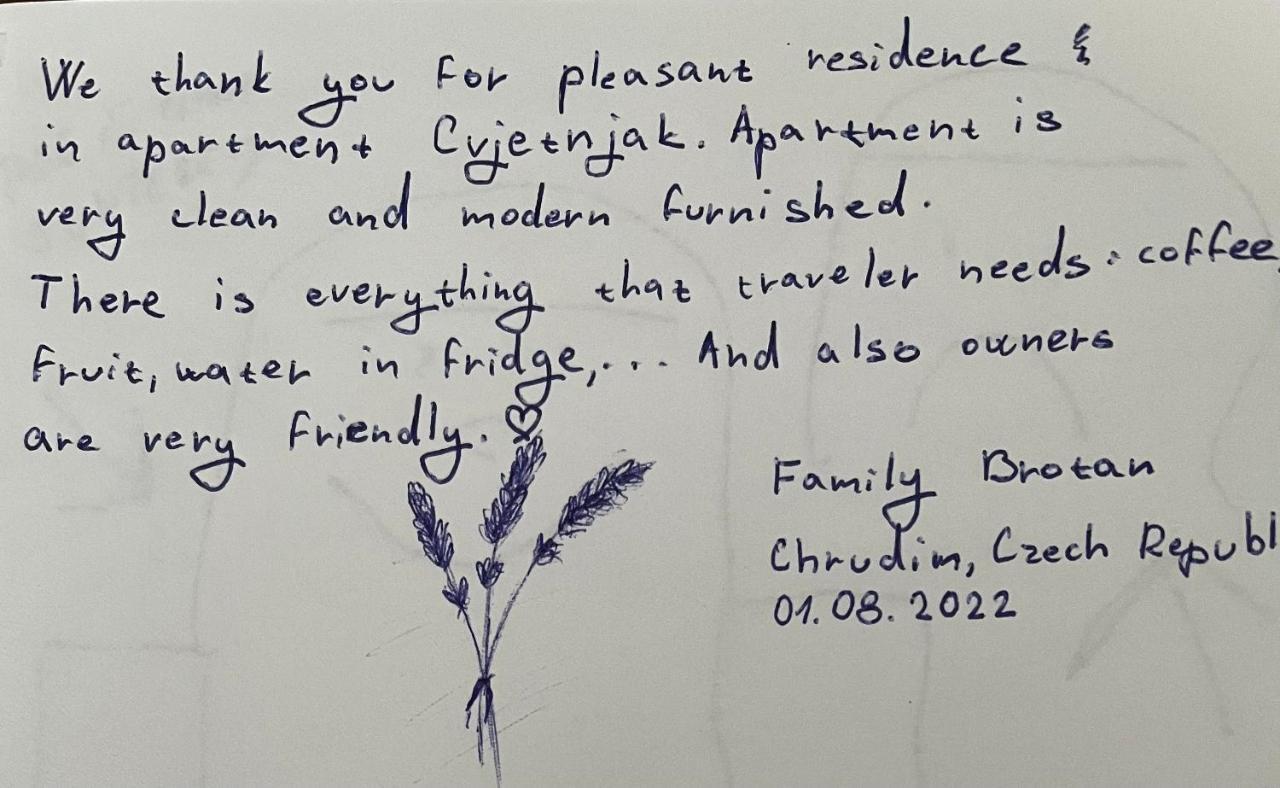 We thank you for pleasant residence
in apartment Cvjetnjak. Apartment is
very clean and modern furnished.
There is everything that traveler needs: coffee,
fruit, water in fridge,... And also owners
are very friendly. ♡
Family Brotan
Chrudim, Czech Republ
01.08.2022